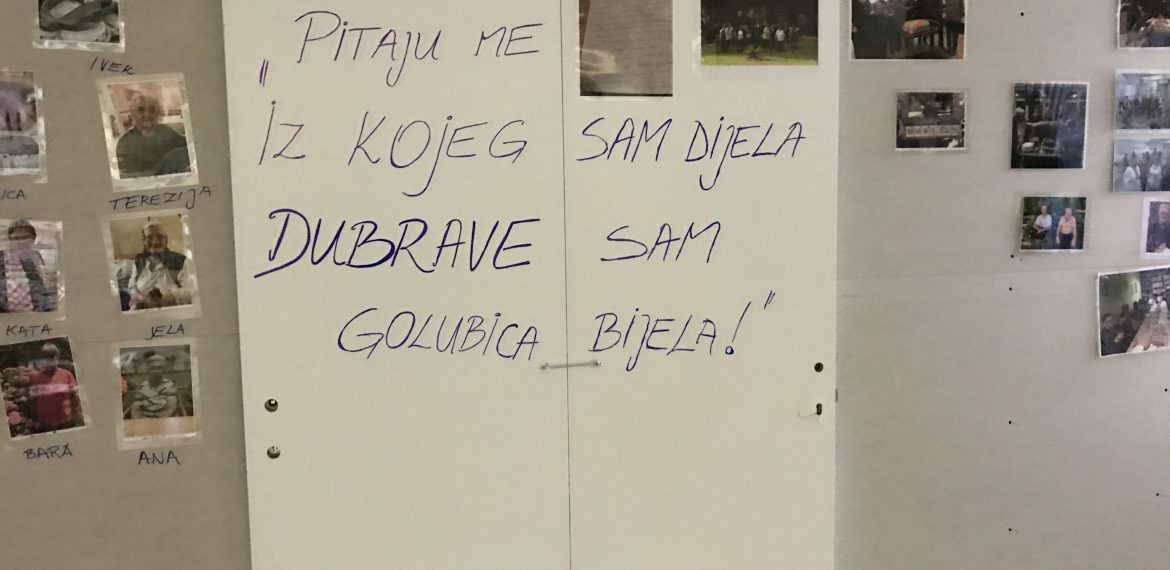 „PITAJU ME
IZ KOJEG SAM DIJELA
DUBRAVE SAM
GOLUBICA BIJELA!"
IVEK
TEREZIJA
KATA
JELA
BARA
ANA